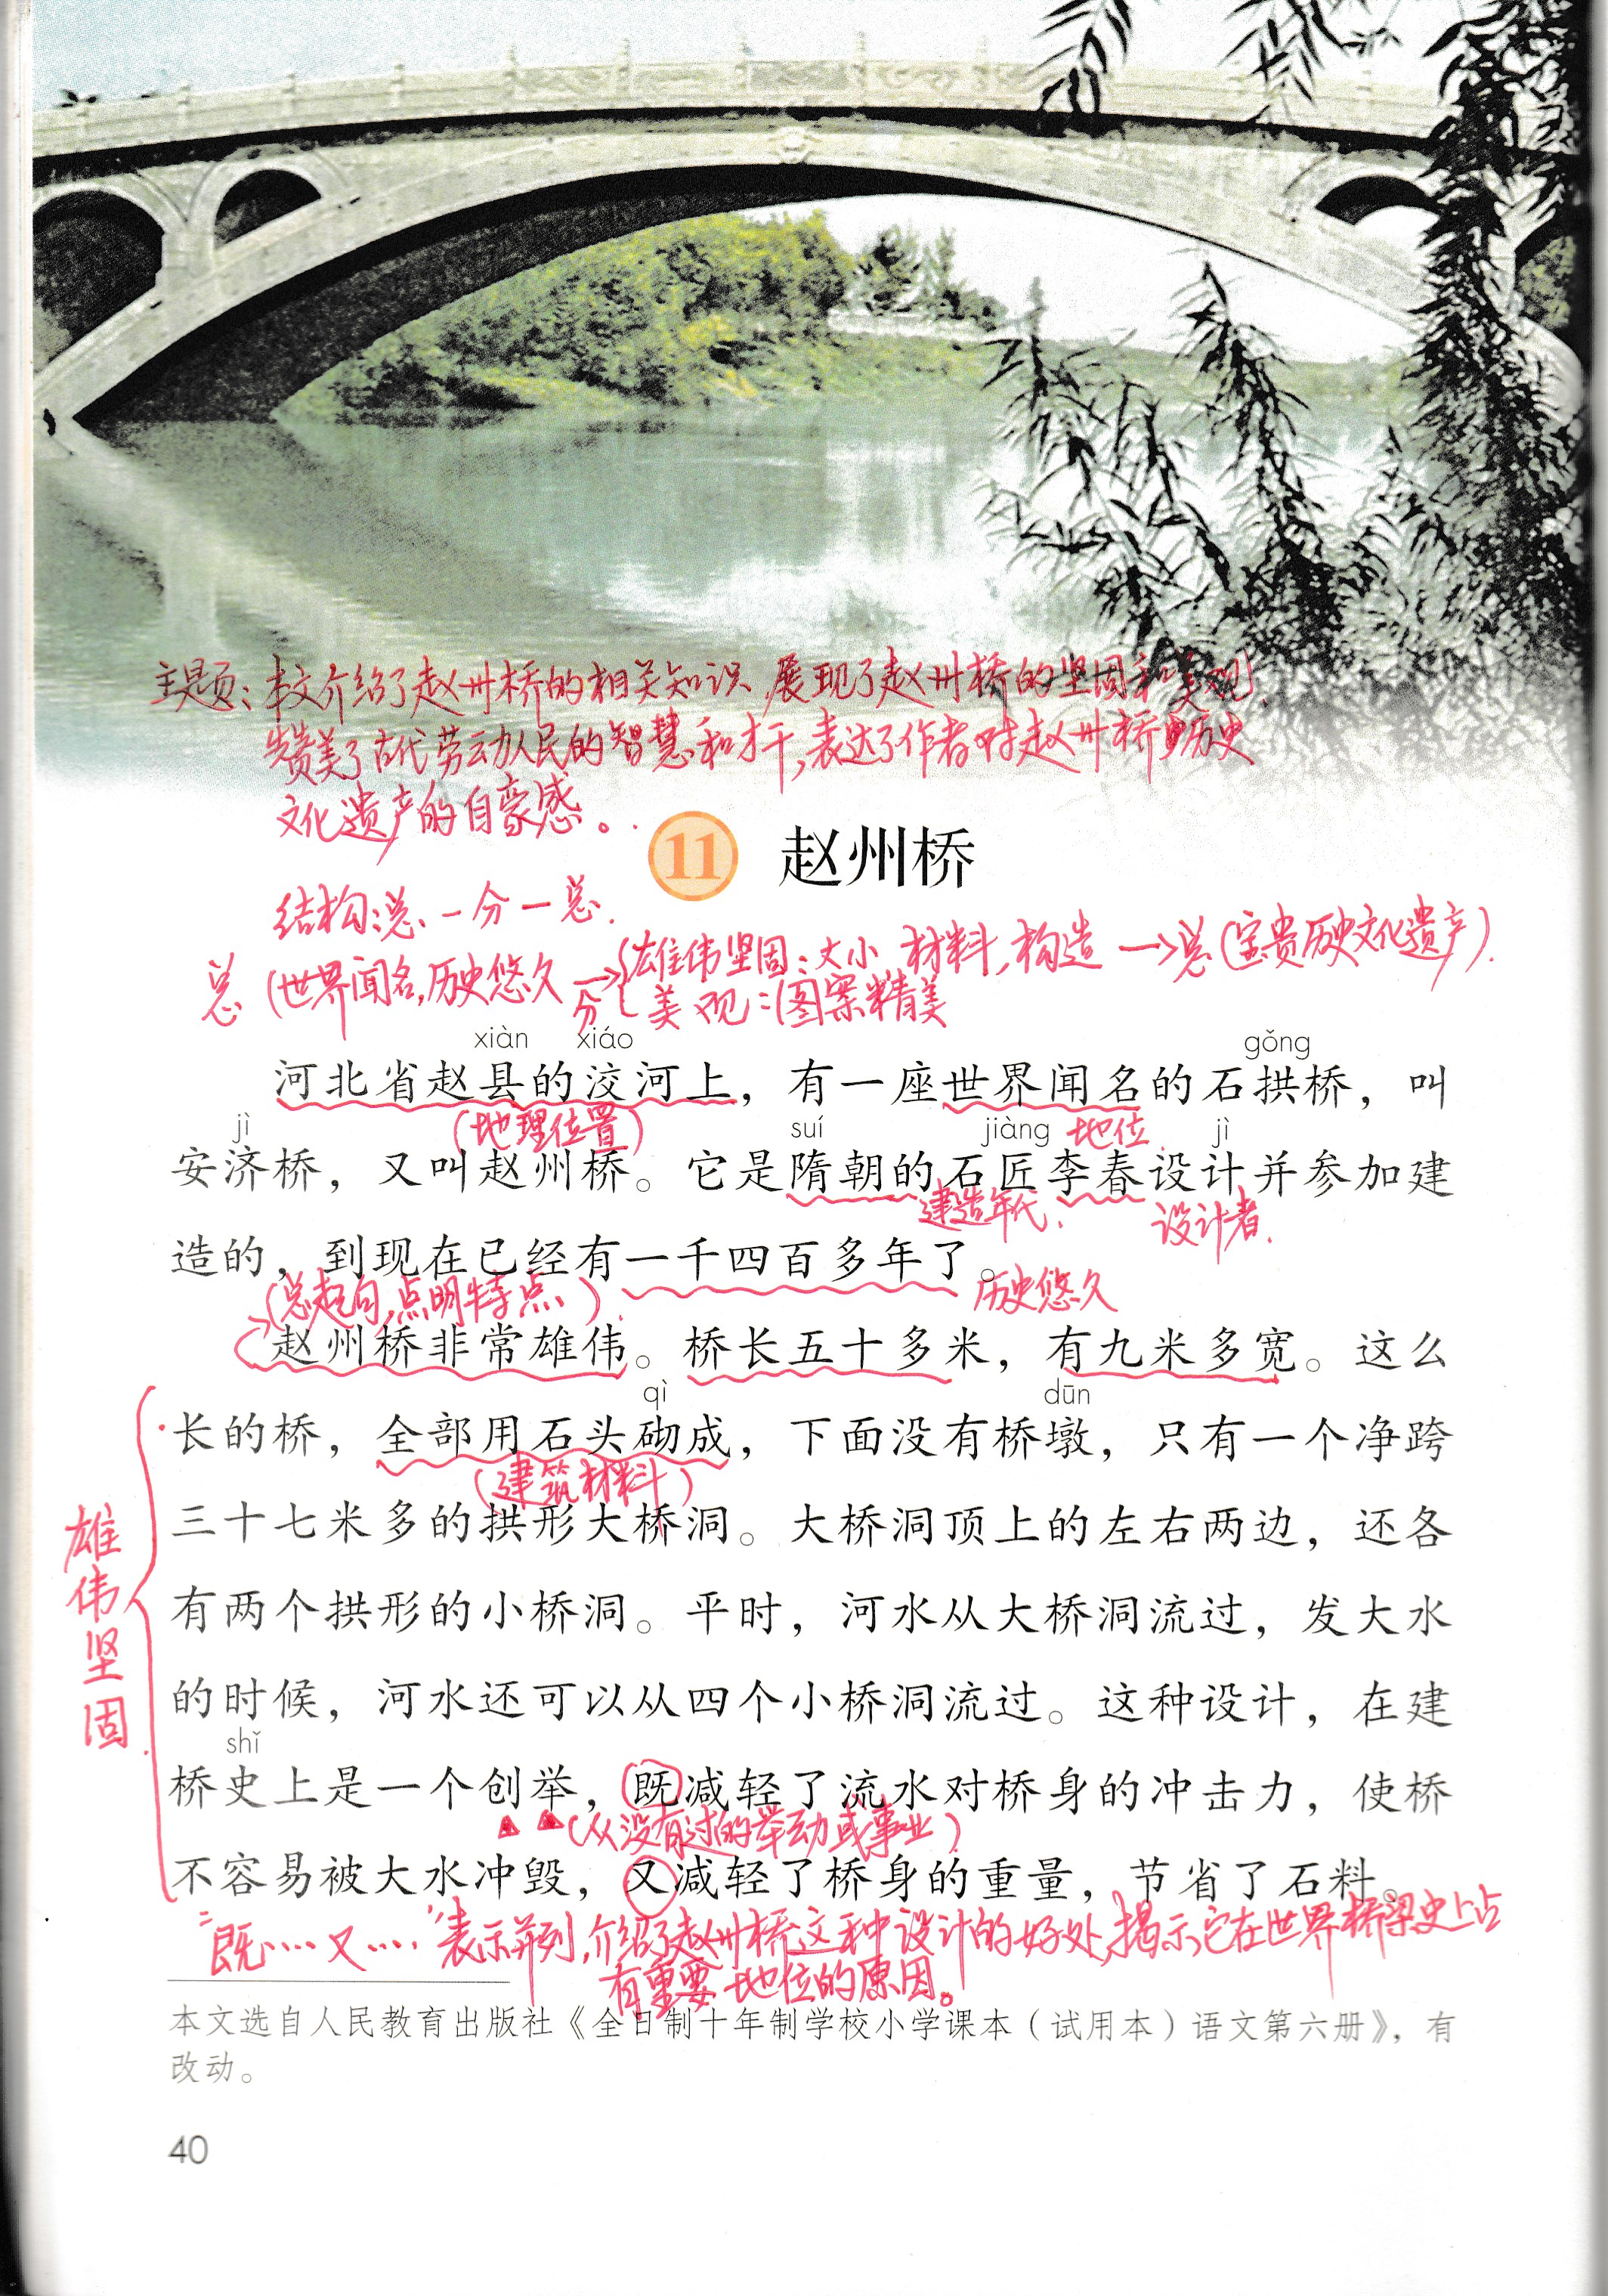 主题：本文介绍了赵州桥的相关知识，展现了赵州桥的坚固和美观，
赞美了古代劳动人民的智慧和才干，表达了作者对赵州桥历史
文化遗产的自豪感。
11 赵州桥
结构：总－分－总．
总（世界闻名，历史悠久 →分｛雄伟坚固：大小 材料，构造 →总（宝贵历史文化遗产）．
美观：图案精美
xiàn xiáo gǒng
河北省赵县的洨河上，有一座世界闻名的石拱桥，叫
（地理位置） 地位
jì suí jiàng jì
安济桥，又叫赵州桥。它是隋朝的石匠李春设计并参加建
建造年代 设计者
造的，到现在已经有一千四百多年了。
（总起句，点明特点） 历史悠久
赵州桥非常雄伟。桥长五十多米，有九米多宽。这么
qì dūn
长的桥，全部用石头砌成，下面没有桥墩，只有一个净跨
（建筑材料）
三十七米多的拱形大桥洞。大桥洞顶上的左右两边，还各
雄伟坚固
有两个拱形的小桥洞。平时，河水从大桥洞流过，发大水
的时候，河水还可以从四个小桥洞流过。这种设计，在建
shǐ
桥史上是一个创举，既减轻了流水对桥身的冲击力，使桥
（从没有过的举动或事业）
不容易被大水冲毁，又减轻了桥身的重量，节省了石料。
“既……又……”表示并列，介绍了赵州桥这种设计的好处，揭示它在世界桥梁史上占
有重要地位的原因。
本文选自人民教育出版社《全日制十年制学校小学课本（试用本）语文第六册》，有
改动。
40